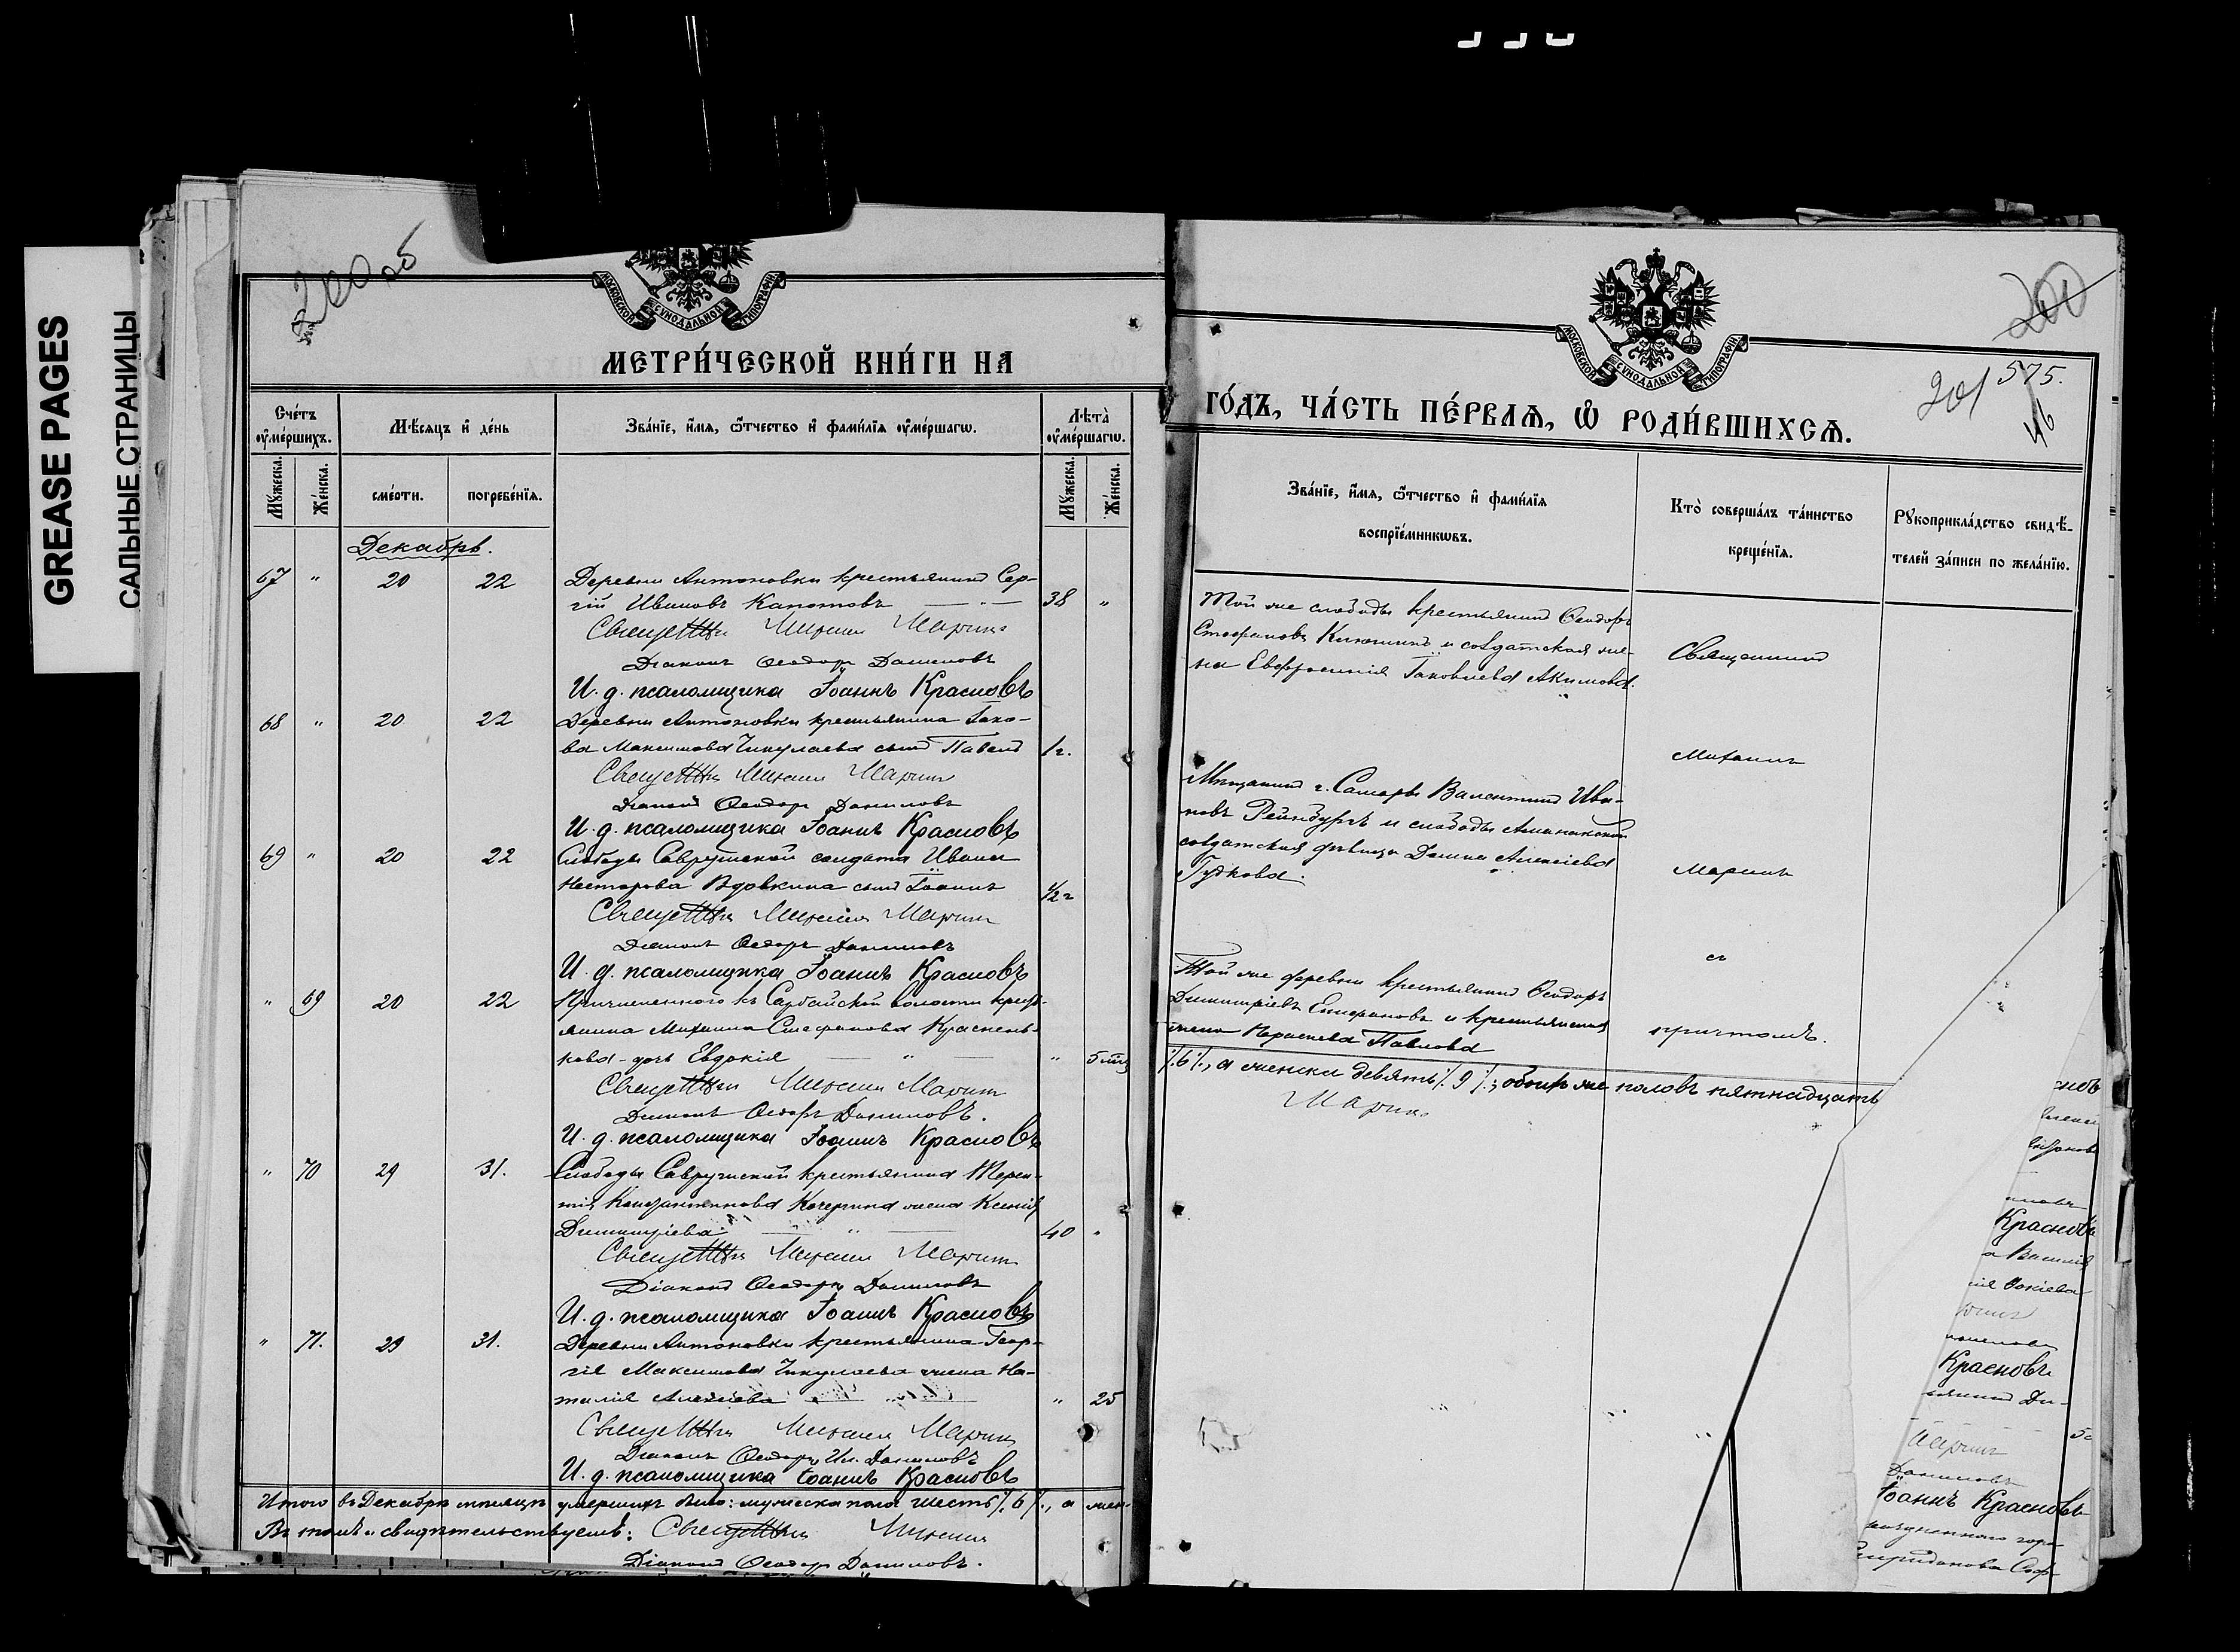 GREASE PAGES
САЛЬНЫЕ СТРАНИЦЫ
200 об
МОСКОВСКОЙ СУНОДАЛЬНОЙ ТИПОГРАФІИ
МЕТРИ́ЧЕСКОЙ КНИ́ГИ НА
Сче́тъ ᲂу҆ме́ршихъ.
Мѣ́сяцъ и҆ де́нь
Зва́нїе, и҆́мѧ, ѻ҆́тчество и҆ фами́лїѧ ᲂу҆ме́ршагѡ.
Лѣ́та ᲂу҆ме́ршагѡ.
Мꙋ́жеска.
Же́нска.
сме́рти.
погребе́нїѧ.
Мꙋ́жеска.
Же́нска.
Декабрь.
67 " 20 22 Деревни Антоновки крестьянинъ Сер-
гій Ивановъ Капотовъ 38 "
Священникъ Михаилъ Маринъ
Діаконъ Ѳеодоръ Даниловъ
И. д. псаломщика Іоаннъ Красновъ
68 " 20 22 Деревни Антоновки крестьянина Іако-
ва Максимова Чикулаева сынъ Павелъ 1 г.
Священникъ Михаилъ Маринъ
Діаконъ Ѳеодоръ Даниловъ
И. д. псаломщика Іоаннъ Красновъ
69 " 20 22 Слободы Саврушской солдата Ивана
Несторова Вдовкина сынъ Іоаннъ 1/2 г
Священникъ Михаилъ Маринъ
Діаконъ Ѳеодоръ Даниловъ
И. д. псаломщика Іоаннъ Красновъ
" 69 20 22 Причисленного къ Сарбайской волости крест-
янина Михаила Стефанова Красень-
кова - дочь Евдокія " 5 мц
Священникъ Михаилъ Маринъ
Діаконъ Ѳеодоръ Даниловъ.
И. д. псаломщика Іоаннъ Красновъ
" 70 29 31. Слободы Саврушской крестьянина Терен-
тія Константинова Кочергина жена Ксенія
Димитріева 40 "
Священникъ Михаилъ Маринъ
Діаконъ Ѳеодоръ Даниловъ
И. д. псаломщика Іоаннъ Красновъ
" 71. 29 31. Деревни Антоновки крестьянина Геор-
гія Максимова Чикулаева жена На-
талія Алексіева " 25
Священникъ Михаилъ Маринъ
Діаконъ Ѳеодоръ Даниловъ
И. д. псаломщика Іоаннъ Красновъ
Итого въ Декабрѣ мѣсяцѣ умершихъ было: мужеска пола шесть ٪6٪, а жен-
Въ томъ и свидѣтельствуемъ: Священникъ Михаилъ
Діаконъ Ѳеодоръ Даниловъ.
МОСКОВСКОЙ СУНОДАЛЬНОЙ ТИПОГРАФІИ
200
201 575.
46
ГО́ДЪ, ЧА́СТЬ ПЕ́РВАѦ, Ѽ РОДИ́ВШИХСѦ.
Зва́нїе, и҆́мѧ, ѻ҆́тчество и҆ фами́лїѧ
воспрїе́мникѡвъ.
Кто̀ соверша́лъ та́инство
креще́нїѧ.
Рꙋкоприкла́дство свидѣ́-
телей за́писи по жела́нїю.
Той же слободы крестьянинъ Ѳеодоръ
Стефановъ Клюшинъ и солдатская же-
на Евфросинія Іаковлева Акимова.
Священникъ
Михаилъ
Мѣщанинъ г. Самары Валентинъ Ива-
новъ Рейнбургъ и слободы Аманакской
солдатская дѣвица Домна Алексіева
Гудкова.
Маринъ
съ
Той же деревни крестьянинъ Ѳеодоръ
Димитріевъ Епифановъ и крестьянская
жена Параскева Павлова
причтомъ.
٪6٪, а женска девять ٪9٪; обоихъ же половъ пятнадцать
Маринъ
Красновъ
а Василія
Красновъ
Маринъ
Даниловъ
Іоаннъ Красновъ